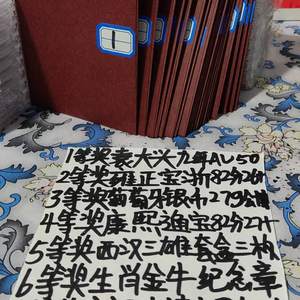 1
1等奖袁大头九年AU50
2等奖雍正宝浙82分26元
3等奖葡萄牙银币279公博
4等奖康熙通宝82分27
5等奖西汉三雄套盒三枚
6等奖生肖金牛纪念章